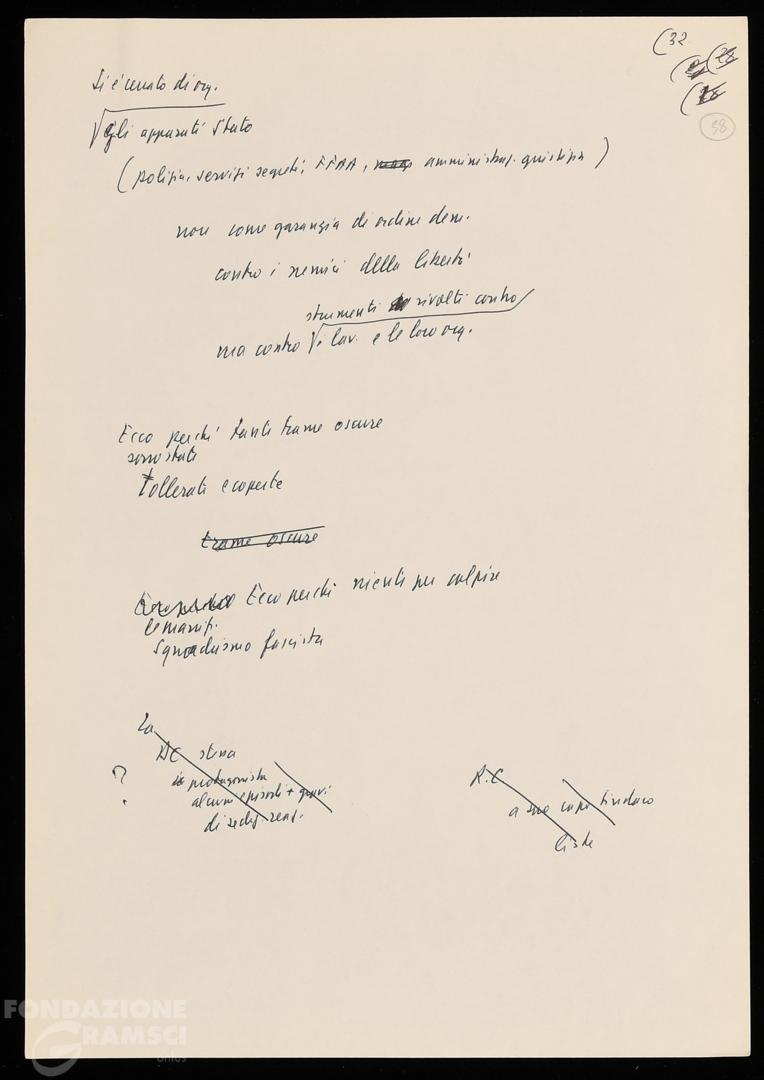 (32
(28
(18
98
Si è cercato di org.
gli apparati Stato
(polizia, servizi segreti, FFAA, amministraz. giustizia)
non come garanzia di ordine dem.
contro i nemici della libertà
strumenti rivolti contro
ma contro i lav. e le loro org.
Ecco perché tante trame oscure
sono state
tollerate e coperte
trame oscure
Ecco perché niente per colpire
le manif.
squadrismo fascista
La
DC stessa
protagonista
alcuni episodi + gravi
di
?
R.C
a suo capo sindaco
liste
FONDAZIONE
GRAMSCI
onlus